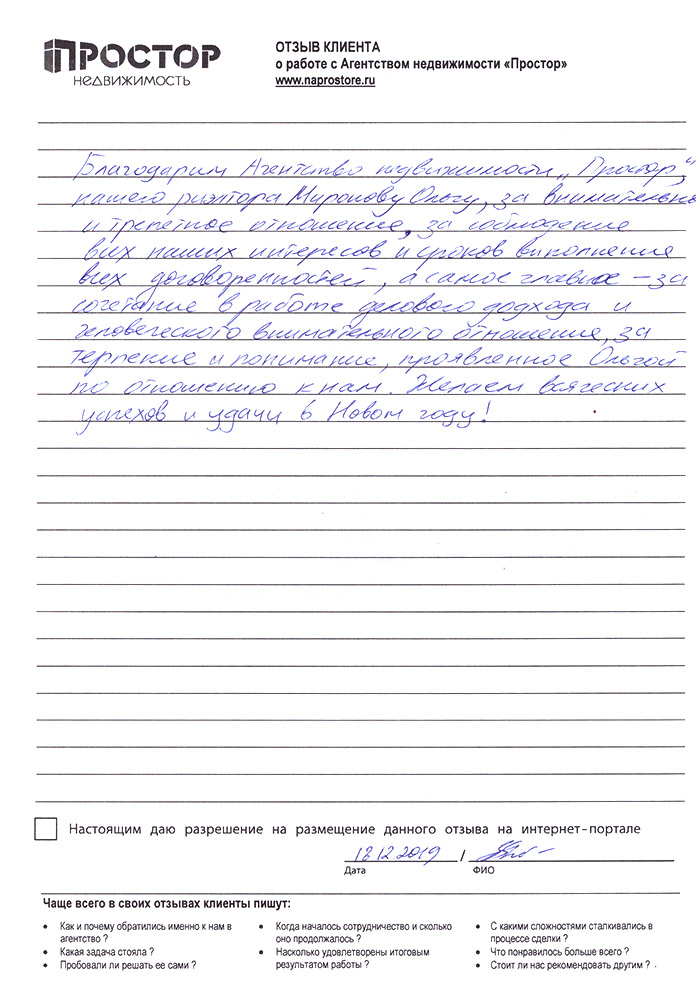 ПРОСТОР
НЕДВИЖИМОСТЬ
ОТЗЫВ КЛИЕНТА
о работе с Агентством недвижимости «Простор»
www.naprostore.ru
Благодарим Агентство недвижимости „Простор“,
нашего риэлтора Миронову Ольгу, за внимательное
и трепетное отношение, за соблюдение
всех наших интересов и сроков выполнения
всех договоренностей, а самое главное – за
сочетание в работе делового подхода и
человеческого внимательного отношения, за
терпение и понимание, проявленное Ольгой
по отношению к нам. Желаем всяческих
успехов и удачи в Новом году!
Настоящим даю разрешение на размещение данного отзыва на интернет-портале
12.2019 /
Дата ФИО
Чаще всего в своих отзывах клиенты пишут:
• Как и почему обратились именно к нам в
агентство ?
• Какая задача стояла ?
• Пробовали ли решать ее сами ?
• Когда началось сотрудничество и сколько
оно продолжалось ?
• Насколько удовлетворены итоговым
результатом работы ?
• С какими сложностями сталкивались в
процессе сделки ?
• Что понравилось больше всего ?
• Стоит ли нас рекомендовать другим ?